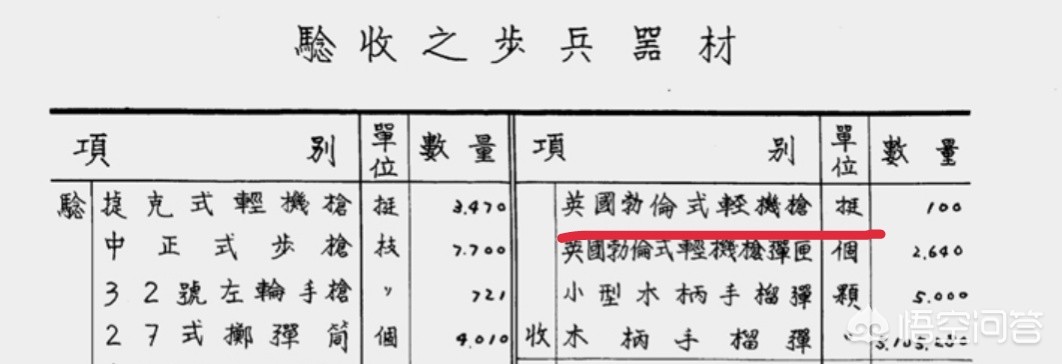 驗收之步兵器材
項別 單位 數量 項別 單位 數量
驗 捷克式輕機槍 挺 3.470 英國勃倫式輕機槍 挺 100
中正式步槍 枝 7.700 英國勃倫式輕機槍彈匣 個 2.640
32號左輪手槍 〃 721 小型木柄手榴彈 顆 5.000
27式擲彈筒 個 4.010 收 木柄手榴彈 〃
悟空问答